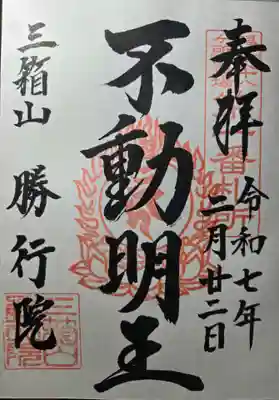 奉拝
令和七年
三月廿二日
不動明王
三箱山 勝行院